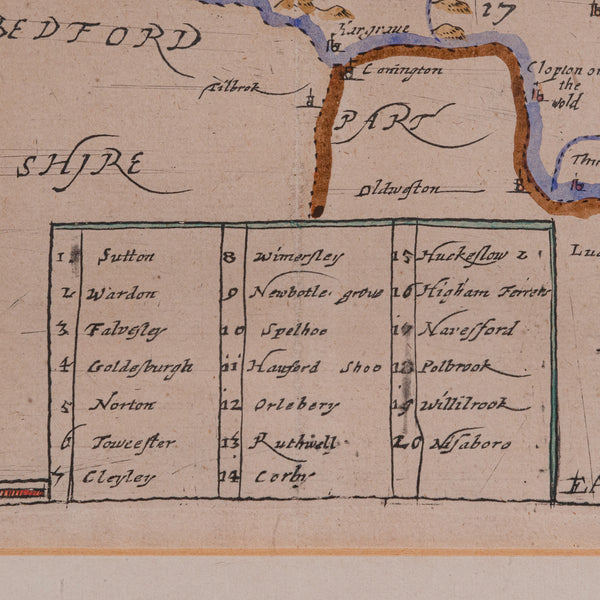 BEDFORD
SHIRE
Kargraue
17
Conington
Tilbrok
Clopton on
the
wold
PART
Thu
Oldweſton
1 Sutton
2 Wardon
3 Falveſley
4 Goldesburgh
5 Norton
6 Towceſter
7 Cleyley
8 Wimerſley
9 Newbotle grove
10 Spelhoo
11 Hauford Shoo
12 Orlebery
13 Ruthwell
14 Corby
15 Huckeſlow
16 Higham Ferrers
17 Naveſford
18 Polbrook
19 Willilrook
20 Niſaboro